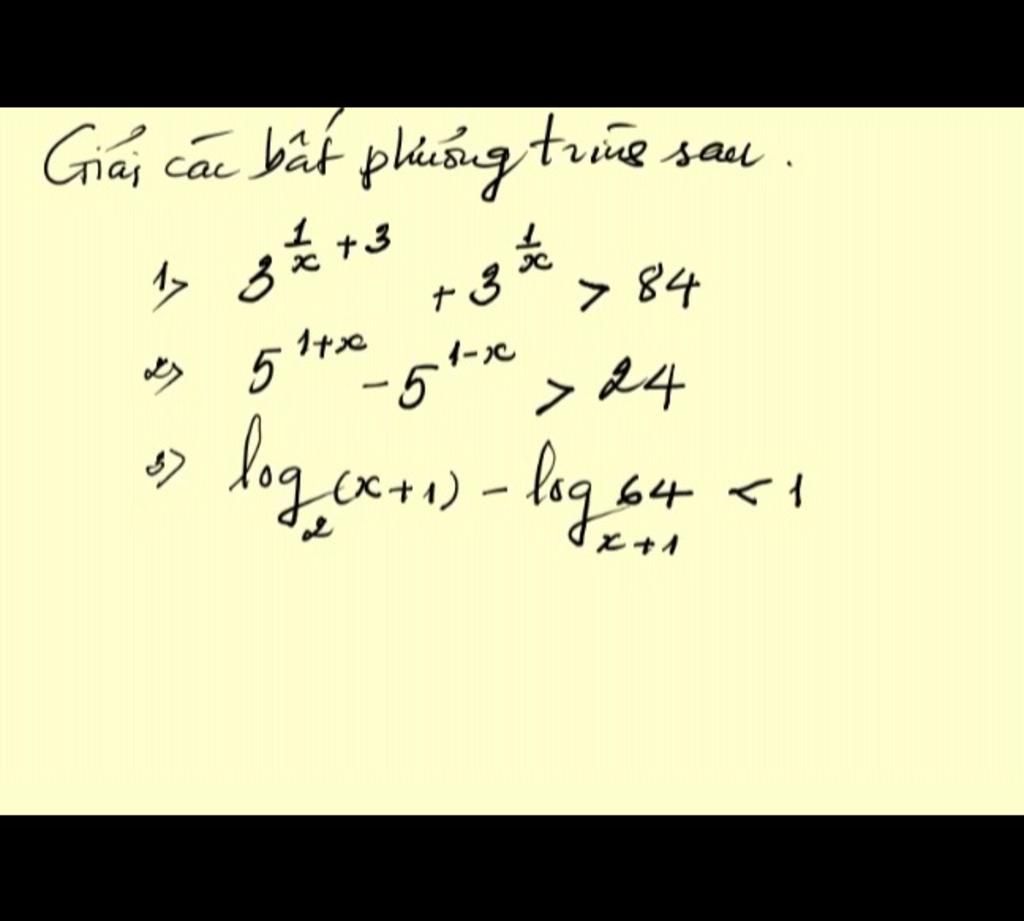 Giải các bất phương trình sau.
1> 3^{\frac{1}{x}+3} + 3^{\frac{1}{x}} > 84
2> 5^{1+x} - 5^{1-x} > 24
3> log_2(x+1) - log_{x+1}64 < 1